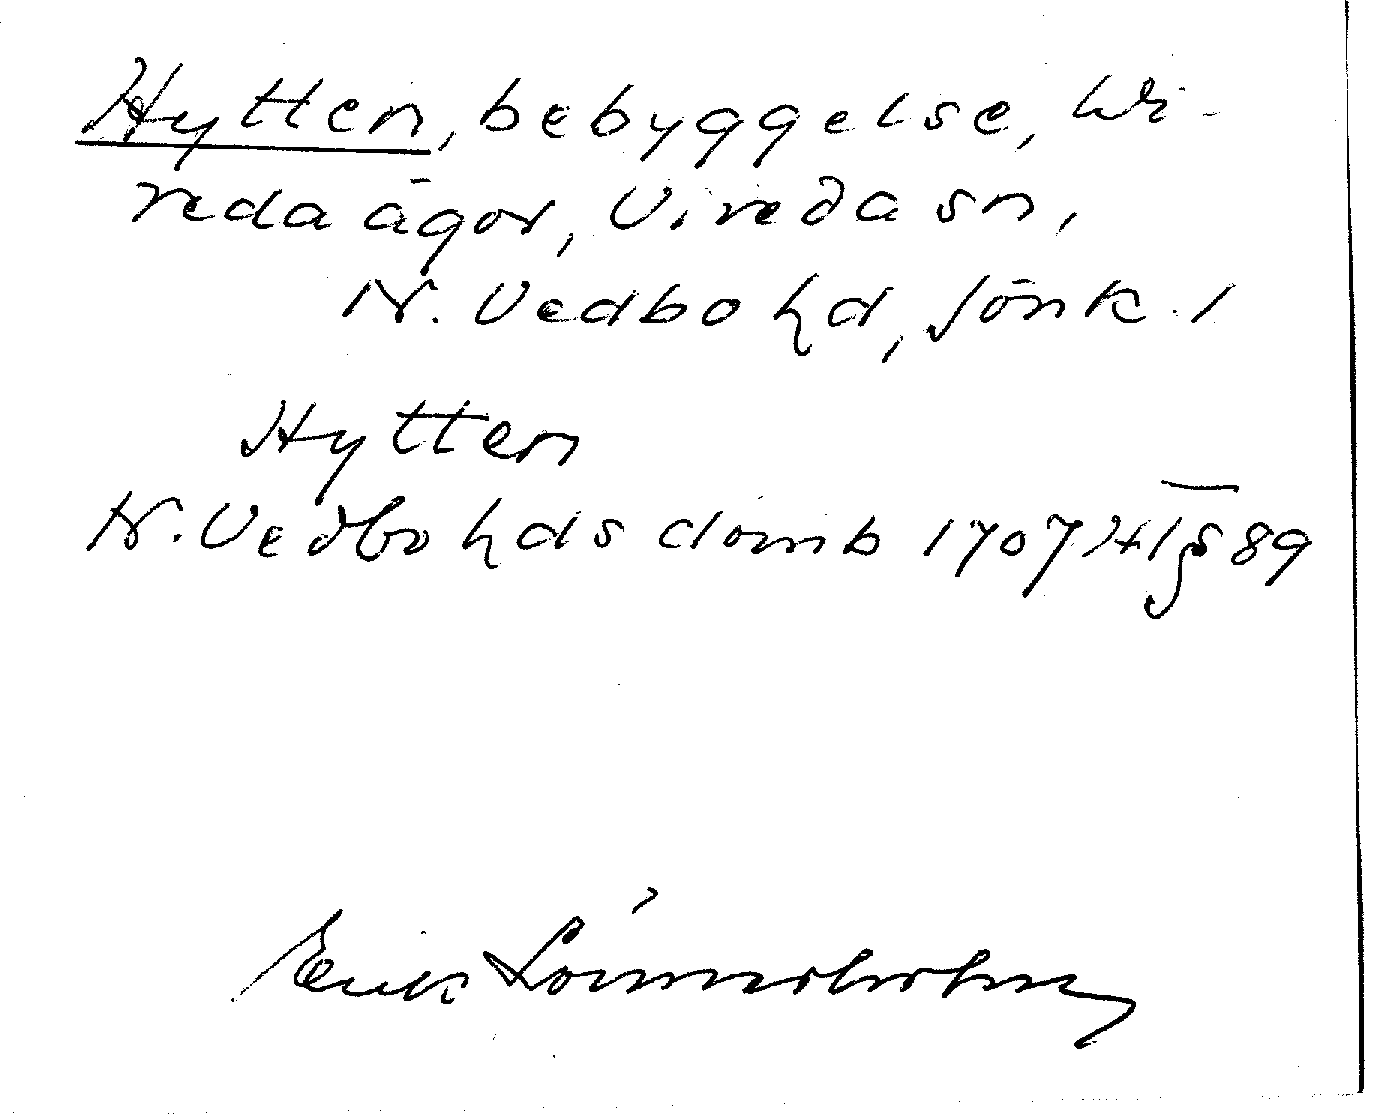 Hytten, bebyggelse, Wi-
reda ägor, Vireda sn,
N. Vedbo hd, Jönk. l
Hytten
N. Vedbo hds domb 1707 14/1 § 89
Erik